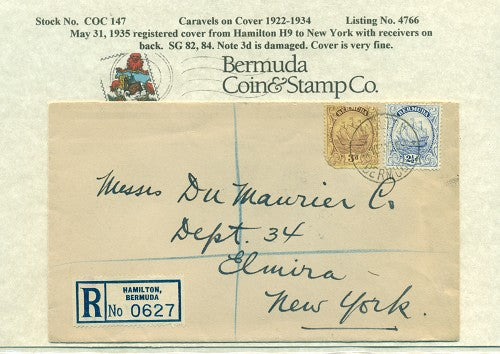 Stock No. COC 147 Caravels on Cover 1922-1934 Listing No. 4766
May 31, 1935 registered cover from Hamilton H9 to New York with receivers on
back. SG 82, 84. Note 3d is damaged. Cover is very fine.
Bermuda
Coin&Stamp Co.
BERMUDA
3d
BERMUDA
2½d
Messrs Du Maurier Co
Dept. 34
Elmira
New York.
R
HAMILTON,
BERMUDA
No 0627